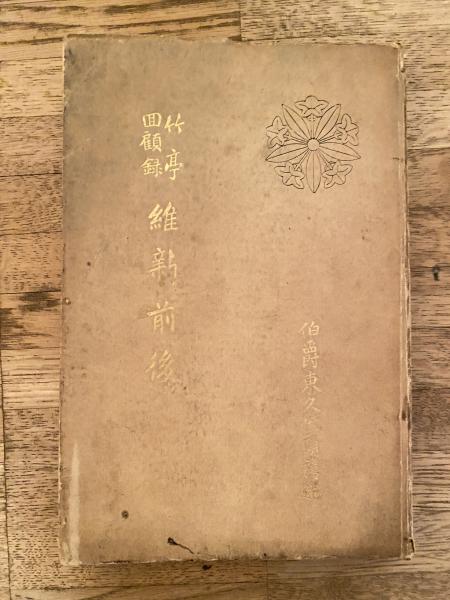 伯爵東久
竹亭
回顧録
維新前後